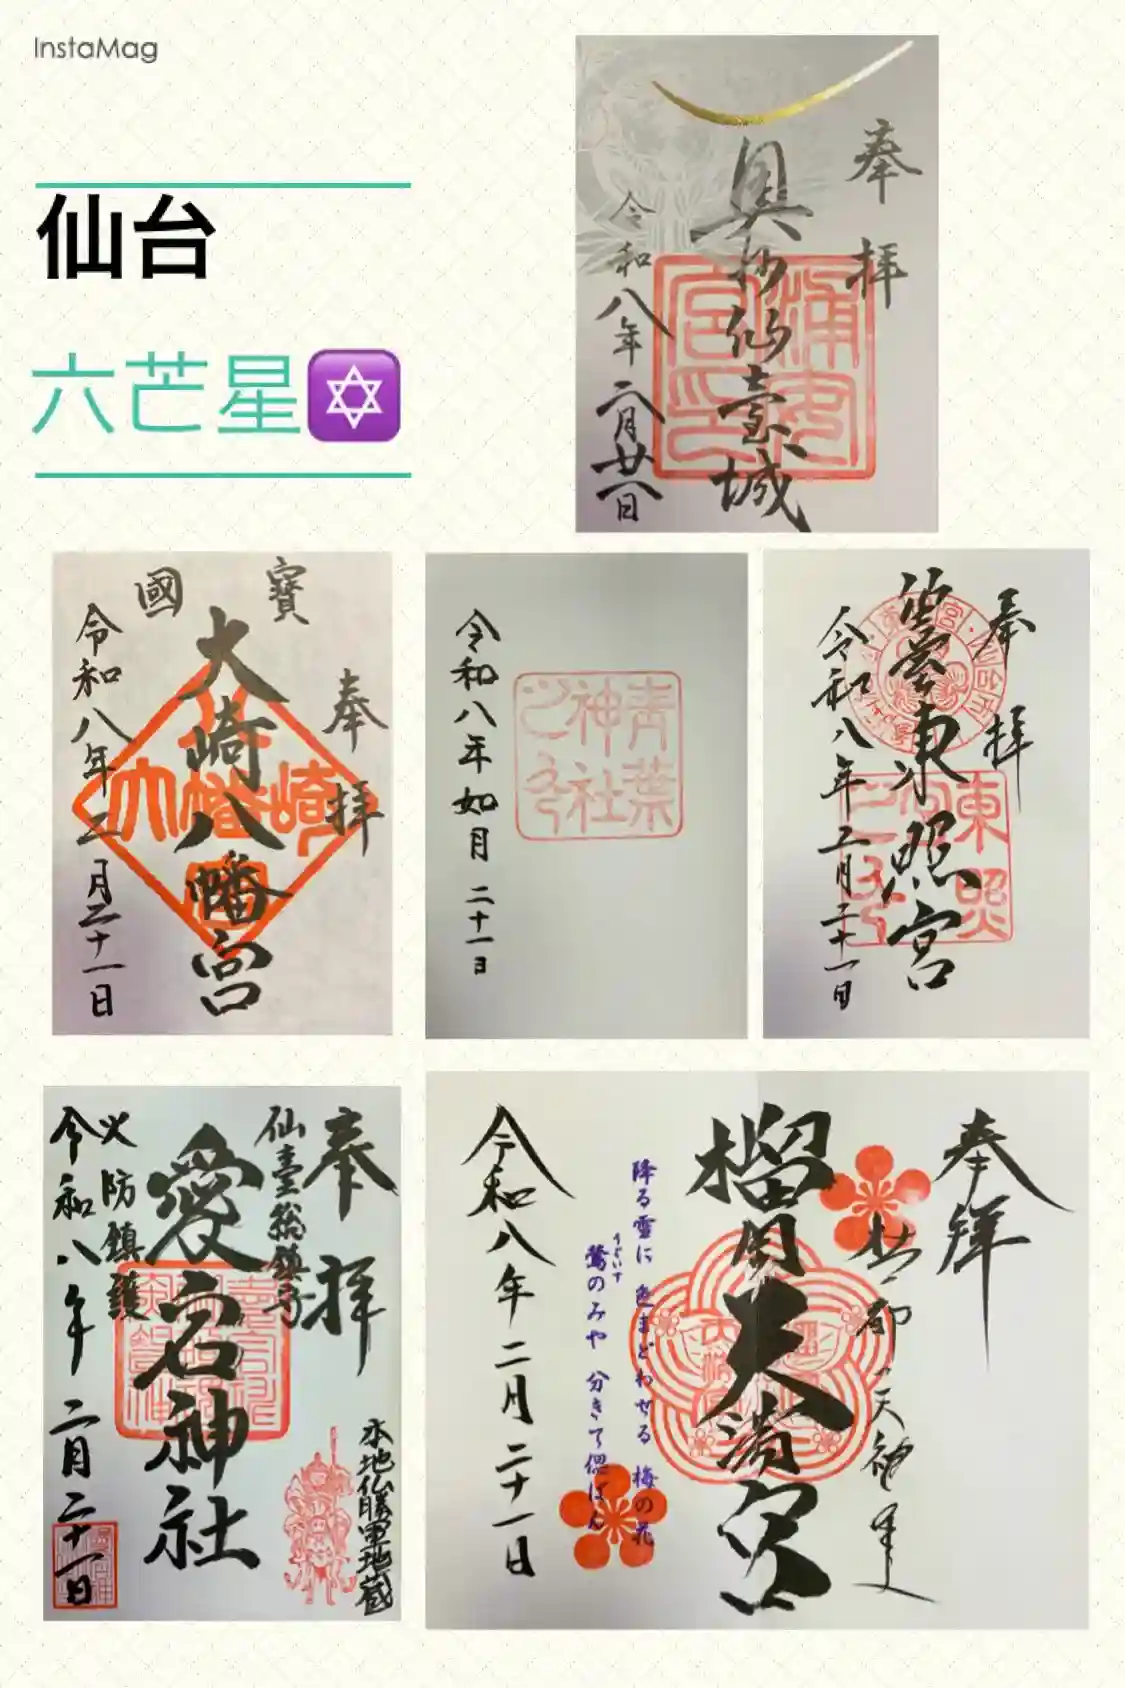 InstaMag
仙台
六芒星
奉拝
奥州仙臺城
令和八年二月廿一日
國寶
奉拝
大崎八幡宮
令和八年二月二十一日
青葉
神社
令和八年如月二十一日
奉拝
仙臺東照宮
東照
令和八年二月二十一日
奉拝
仙臺総鎮守
愛宕神社
火防鎮護
令和八年二月二十一日
本地仏勝軍地蔵
奉拝
榴岡天満宮
降る雪に 色まどわせる 梅の花
鶯のみや 分きて偲ばん
うぐいす
令和八年二月二十一日